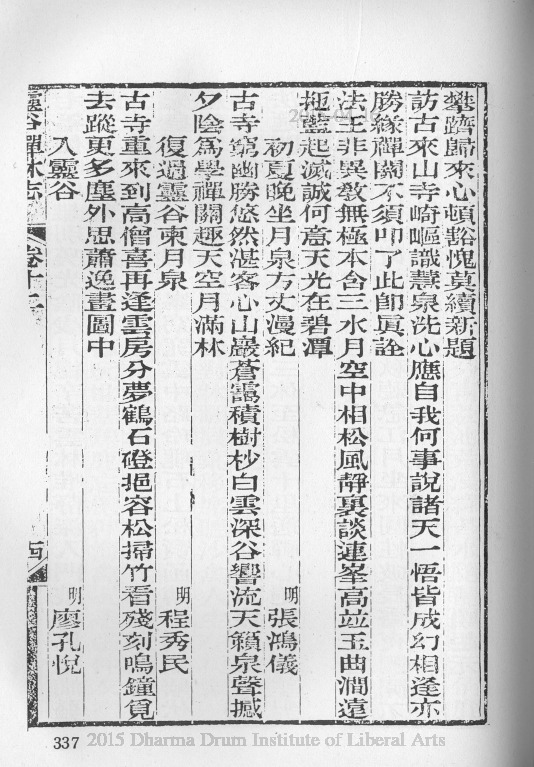 攀躋歸來心頓豁愧莫續新題
訪古來山寺崎嶇識慧泉洗心應自我何事說諸天一悟皆成幻相逢亦
勝緣禪關不須叩了此卽眞詮
法王非異敎無極本含三水月空中相松風靜裏談連峯高竝玉曲澗遠
拖藍起滅誠何意天光在碧潭
初夏晚坐月泉方丈漫紀
明 張鴻儀
古寺窮幽勝悠然湛客心山巖蒼靄積樹杪白雲深谷響流天籟泉聲撼
夕陰爲學禪關趣天空月滿林
復過靈谷柬月泉
明 程秀民
古寺重來到高僧喜再逢雲房分夢鶴石磴挹容松掃竹看殘刻鳴鐘覓
去蹤更多塵外思蕭逸畫圖中
入靈谷
明 廖孔悅
靈谷禪林志
卷十二
337
2015 Dharma Drum Institute of Liberal Arts